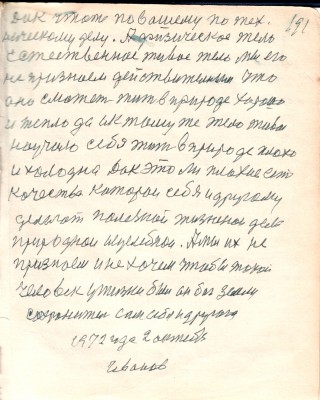 191
Дак чтоже по вашему по тех
ническому делу. А физическое тело
естественное живое тело мы его
не признаем действительным что
оно сможет жить в природе хорошо
и тепло да и к тому же тело живое
научило себя жить в природе плохо
и холодна Дак это ли плохие
качества которои себя и другому
делают полезной жизненое дело
природнои и целебнои. А мы их не
признаем и не хочем чтобы такой
человек у жизни был он бы землю
сохранител сам себе и другога
1972 года 2 октебр
Иванов